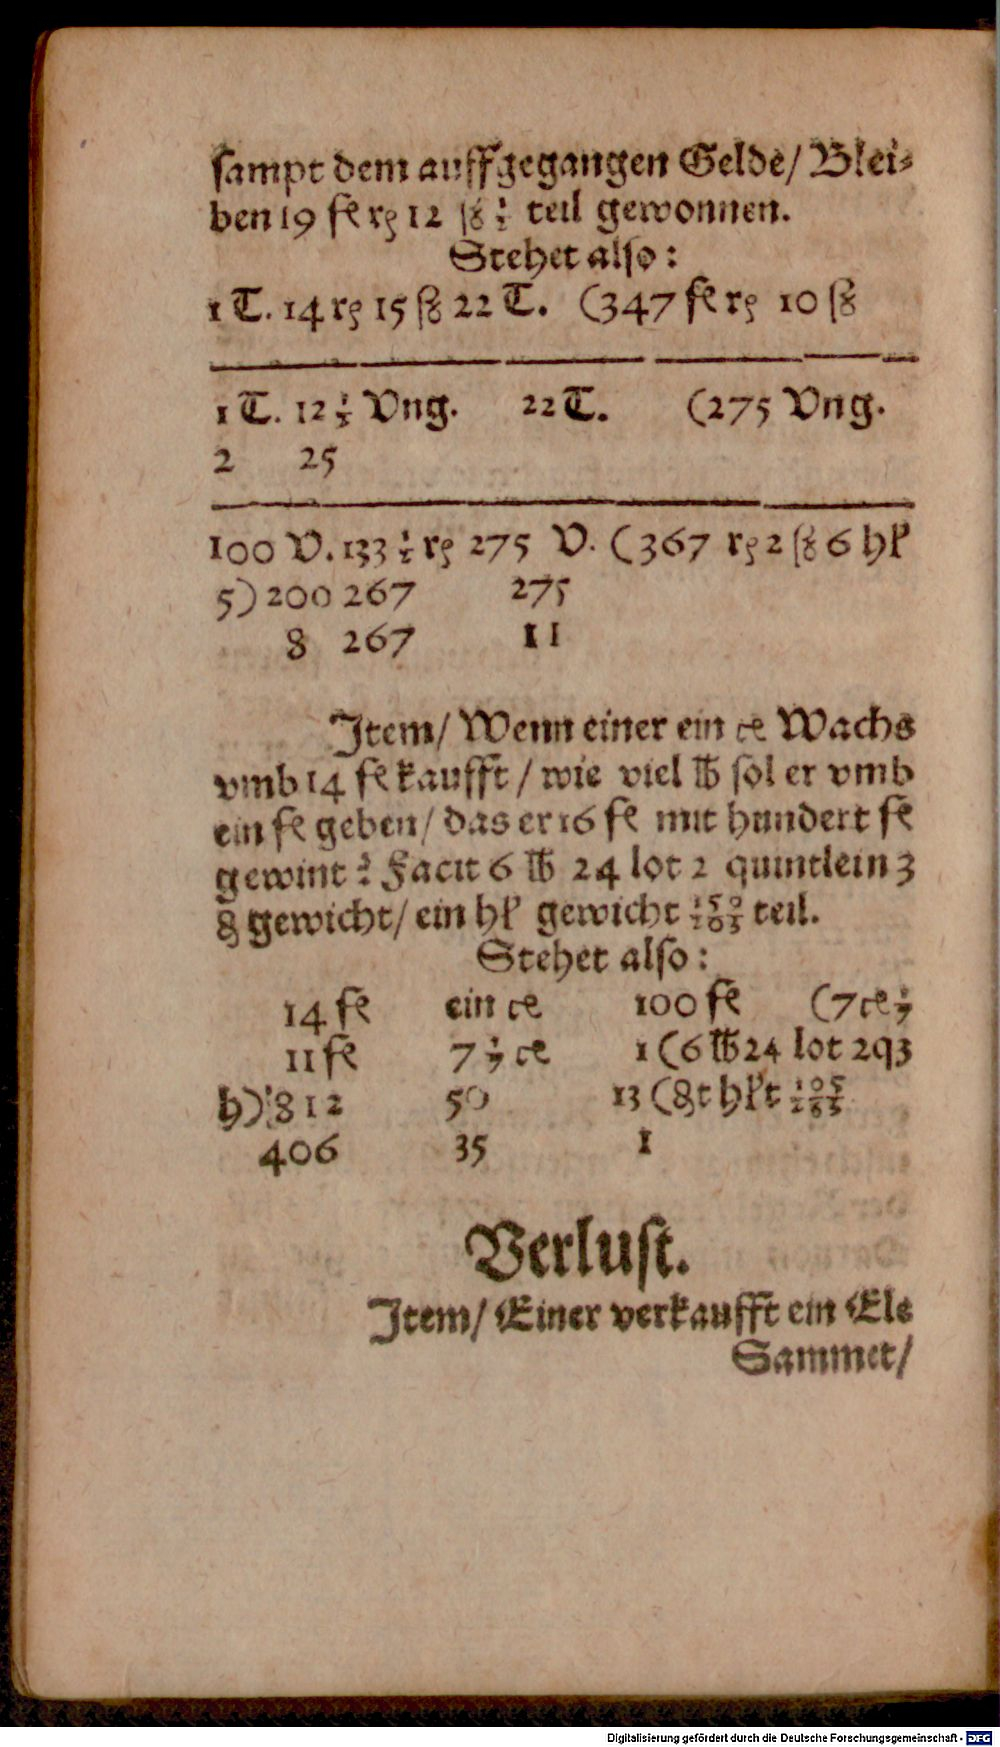 ſampt dem auffgegangen Gelde/ Blei⸗
ben 19 fl rꝭ 12 ſꝭ ½ teil gewonnen.
Stehet alſo:
1 T. 14 rꝭ 15 ſꝭ 22 T. (347 fl rꝭ 10 ſꝭ
1 T. 12 ½ Vng. 22 T. (275 Vng.
2 25
100 V. 133 ½ rꝭ 275 V. (367 rꝭ 2 ſꝭ 6 hl
5) 200 267 275
8 267 11
Item/ Wenn einer ein ce Wachs
vmb 14 fl kaufft/ wie viel lb ſol er vmb
ein fl geben/ das er 16 fl mit hundert fl
gewint? Facit 6 lb 24 lot 2 quintlein 3
₰ gewicht/ ein hl gewicht teil.
Stehet alſo:
14 fl ein ce 100 fl (7 ce 1/7
11 fl 7 1/7 ce 1 (6 lb 24 lot 2 q 3
h) 812 50 13 (₰t hlt
406 35 1
Verluſt.
Item/ Einer verkaufft ein Ele
Sammet/
Digitalisierung gefördert durch die Deutsche Forschungsgemeinschaft - DFG